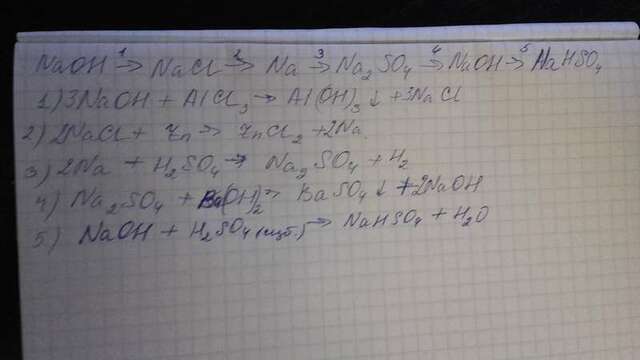 NaOH 1→ NaCl 2→ Na 3→ Na₂SO₄ 4→ NaOH 5→ NaHSO₄
1) 3NaOH + AlCl₃ → Al(OH)₃↓ + 3NaCl
2) 2NaCl + Zn → ZnCl₂ + 2Na.
3) 2Na + H₂SO₄ → Na₂SO₄ + H₂
4) Na₂SO₄ + Ba(OH)₂ → BaSO₄↓ + 2NaOH
5) NaOH + H₂SO₄ (изб.) → NaHSO₄ + H₂O